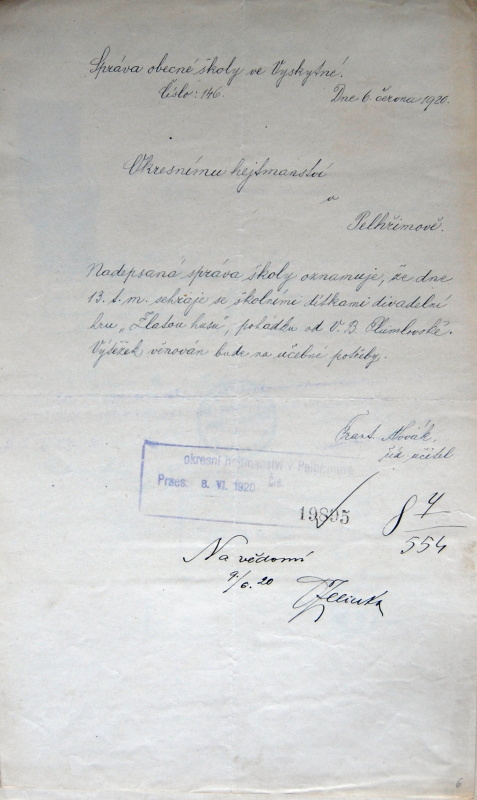 Správa obecné školy ve Vyskytné.
Číslo: 146. Dne 6. června 1920.
Okresnímu hejtmanství
v
Pelhřimově.
Nadepsaná správa školy oznamuje, že dne
13. t. m. sehraje se školními dítkami divadelní
hru „Zlatou husu", pohádku od V. B. Plumlovské.
Výtěžek věnován bude na učebné potřeby.
Frant. Novák,
říd. učitel
okresní hejtmanství v Pelhřimově
Praes. 8. VI. 1920 čís.
19895
8 4/554
Na vědomí
9./6. 20
Jelinka
6